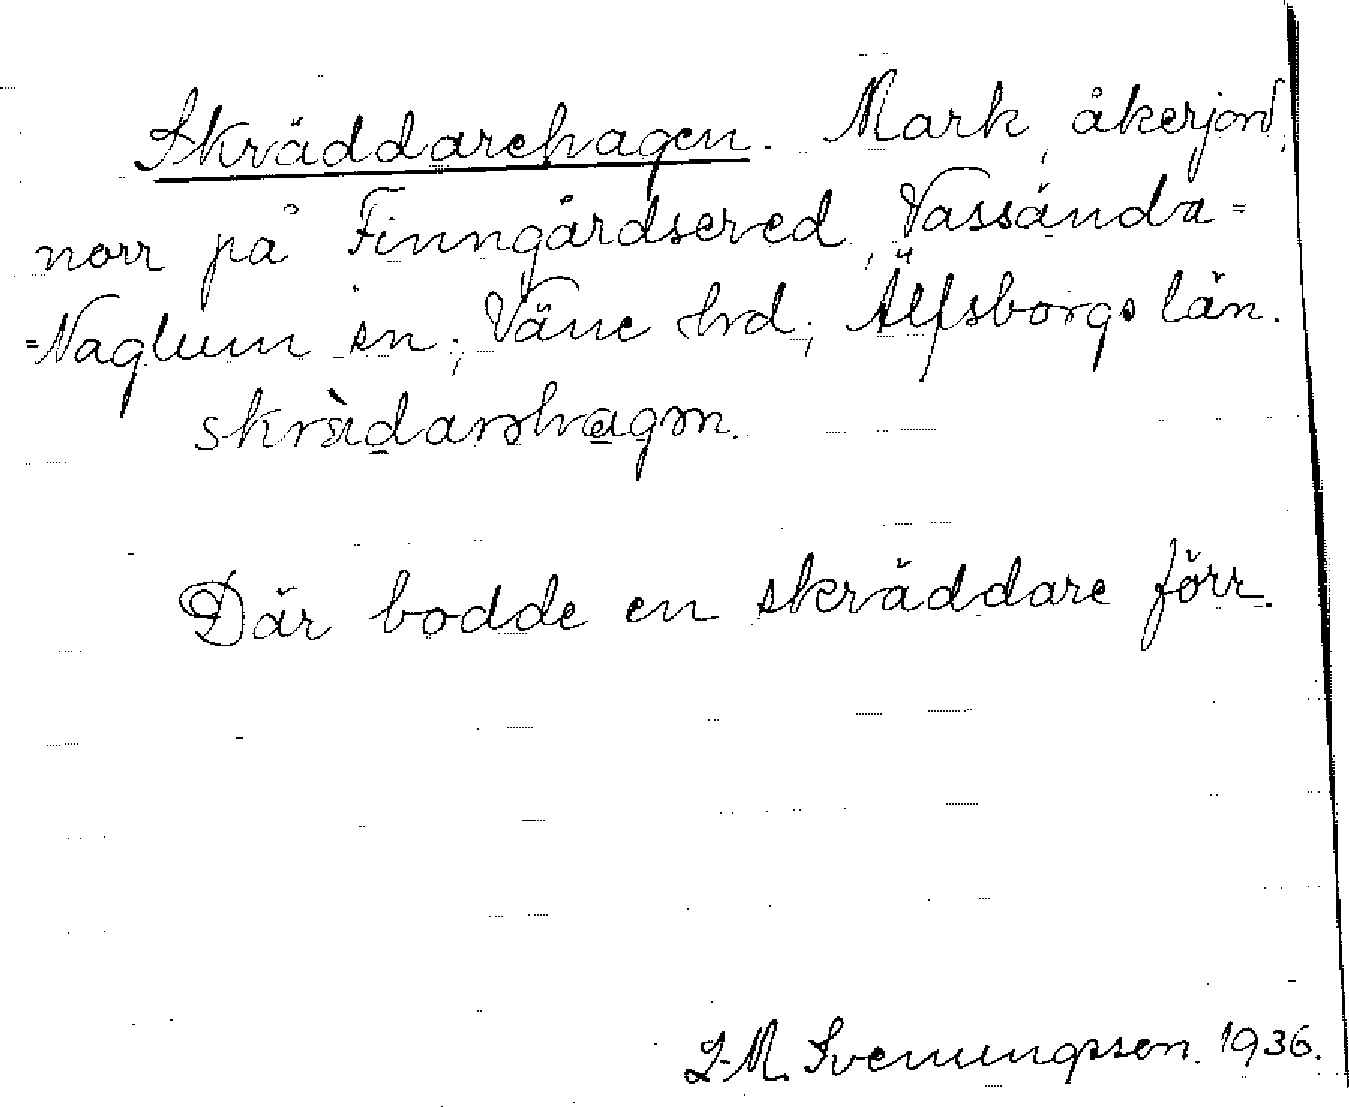 Skräddarehagen. Mark, åkerjord,
norr på Finngårdsered, Vassända=
=Naglum sn; Väne hrd; Älfsborgs län.
skrädarəhagən.
Där bodde en skräddare förr.
I-M. Svenungsson. 1936.